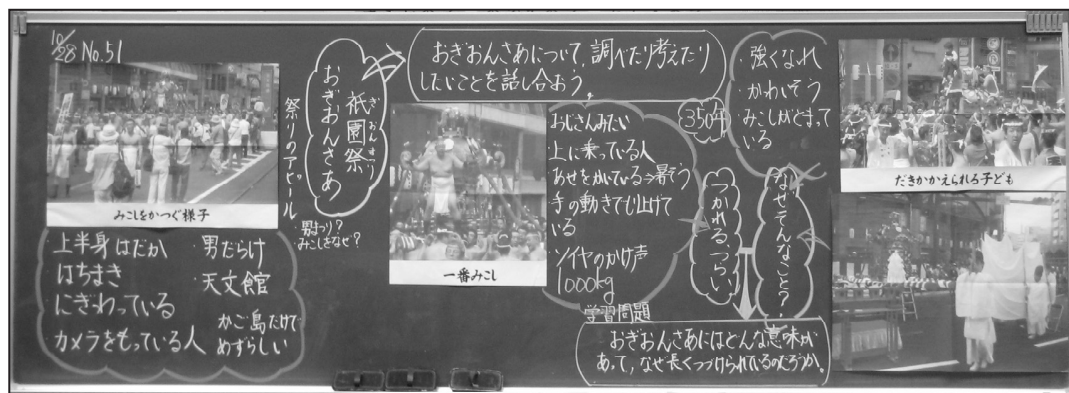 10/28 No.51
みこしをかつぐ様子
・上半身はだか
はちまき
にぎわっている
カメラをもっている人
・男だらけ
・天文館
かご島だけで
めずらしい
ぎおんまつり
祇園祭
おぎおんさあ
祭りのアピール
・男まつり?
みこしをなぜ?
おぎおんさあについて、調べたり考えたり
したいことを話し合おう。
一番みこし
おじさんみたい
上に乗っている人
あせをかいている→暑そう
手の動きでもり上げて
いる
・ソイヤのかけ声
1000kg
350円
・強くなれ
・かわいそう
・みこしがとまって
いる
なぜそんなこと?
つかれる、つらい
だきかかえられる子ども
学習問題
おぎおんさあにはどんな意味が
あって、なぜ長くつづけられているのだろうか。